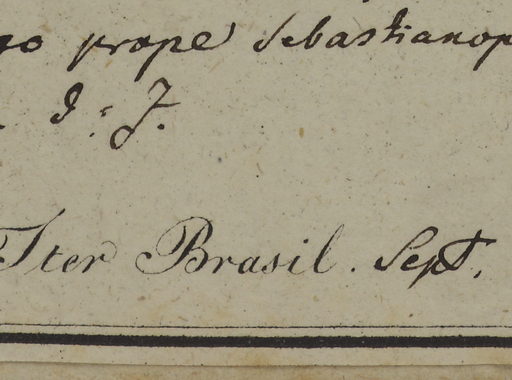 go prope Sebastianop
J: J.
Iter Brasil. Sept.